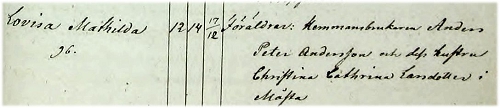 Lovisa Mathilda 12 14 17/12 Föräldrar: Hemmansbrukaren Anders
96. Peter Andersson och dess hustru
Christina Cathrina Larsdotter i
Mösta